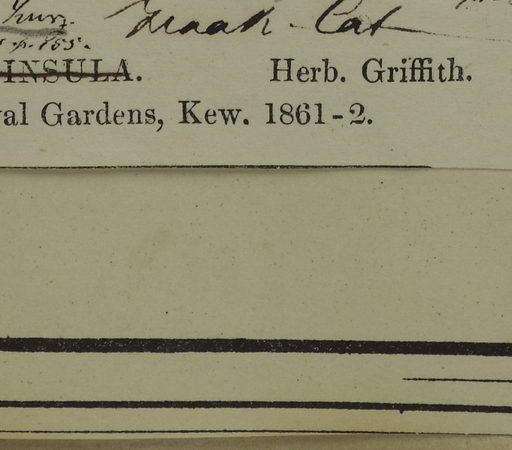 Kurz.
p. 155.
INSULA. Herb. Griffith.
al Gardens, Kew. 1861-2.